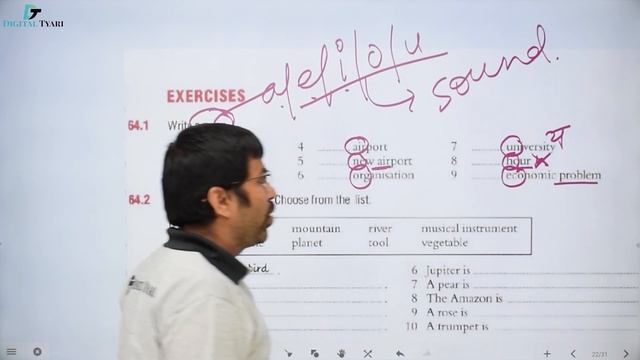 DT
DIGITAL TYARI
a/e/i/o/u
sound.
EXERCISES
64.1 Write
4 airport
5 new airport
6 organisation
7 university य
8 hour
9 economic problem
64.2 Choose from the list.
mountain river musical instrument
planet tool vegetable
bird
6 Jupiter is
7 A pear is
8 The Amazon is
9 A rose is
10 A trumpet is
22/31